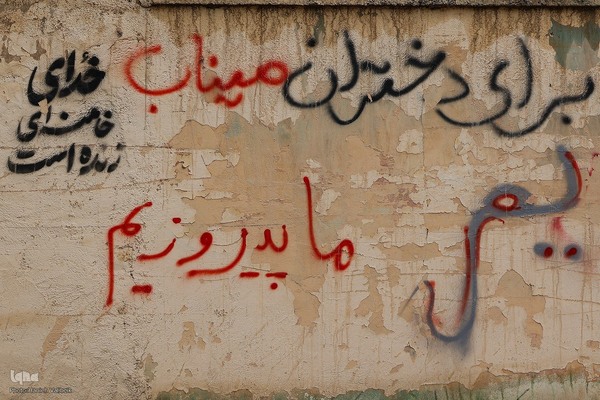 برای دختران میناب
خدای
خامنه‌ای
زنده است
ما پیروزیم
iqna